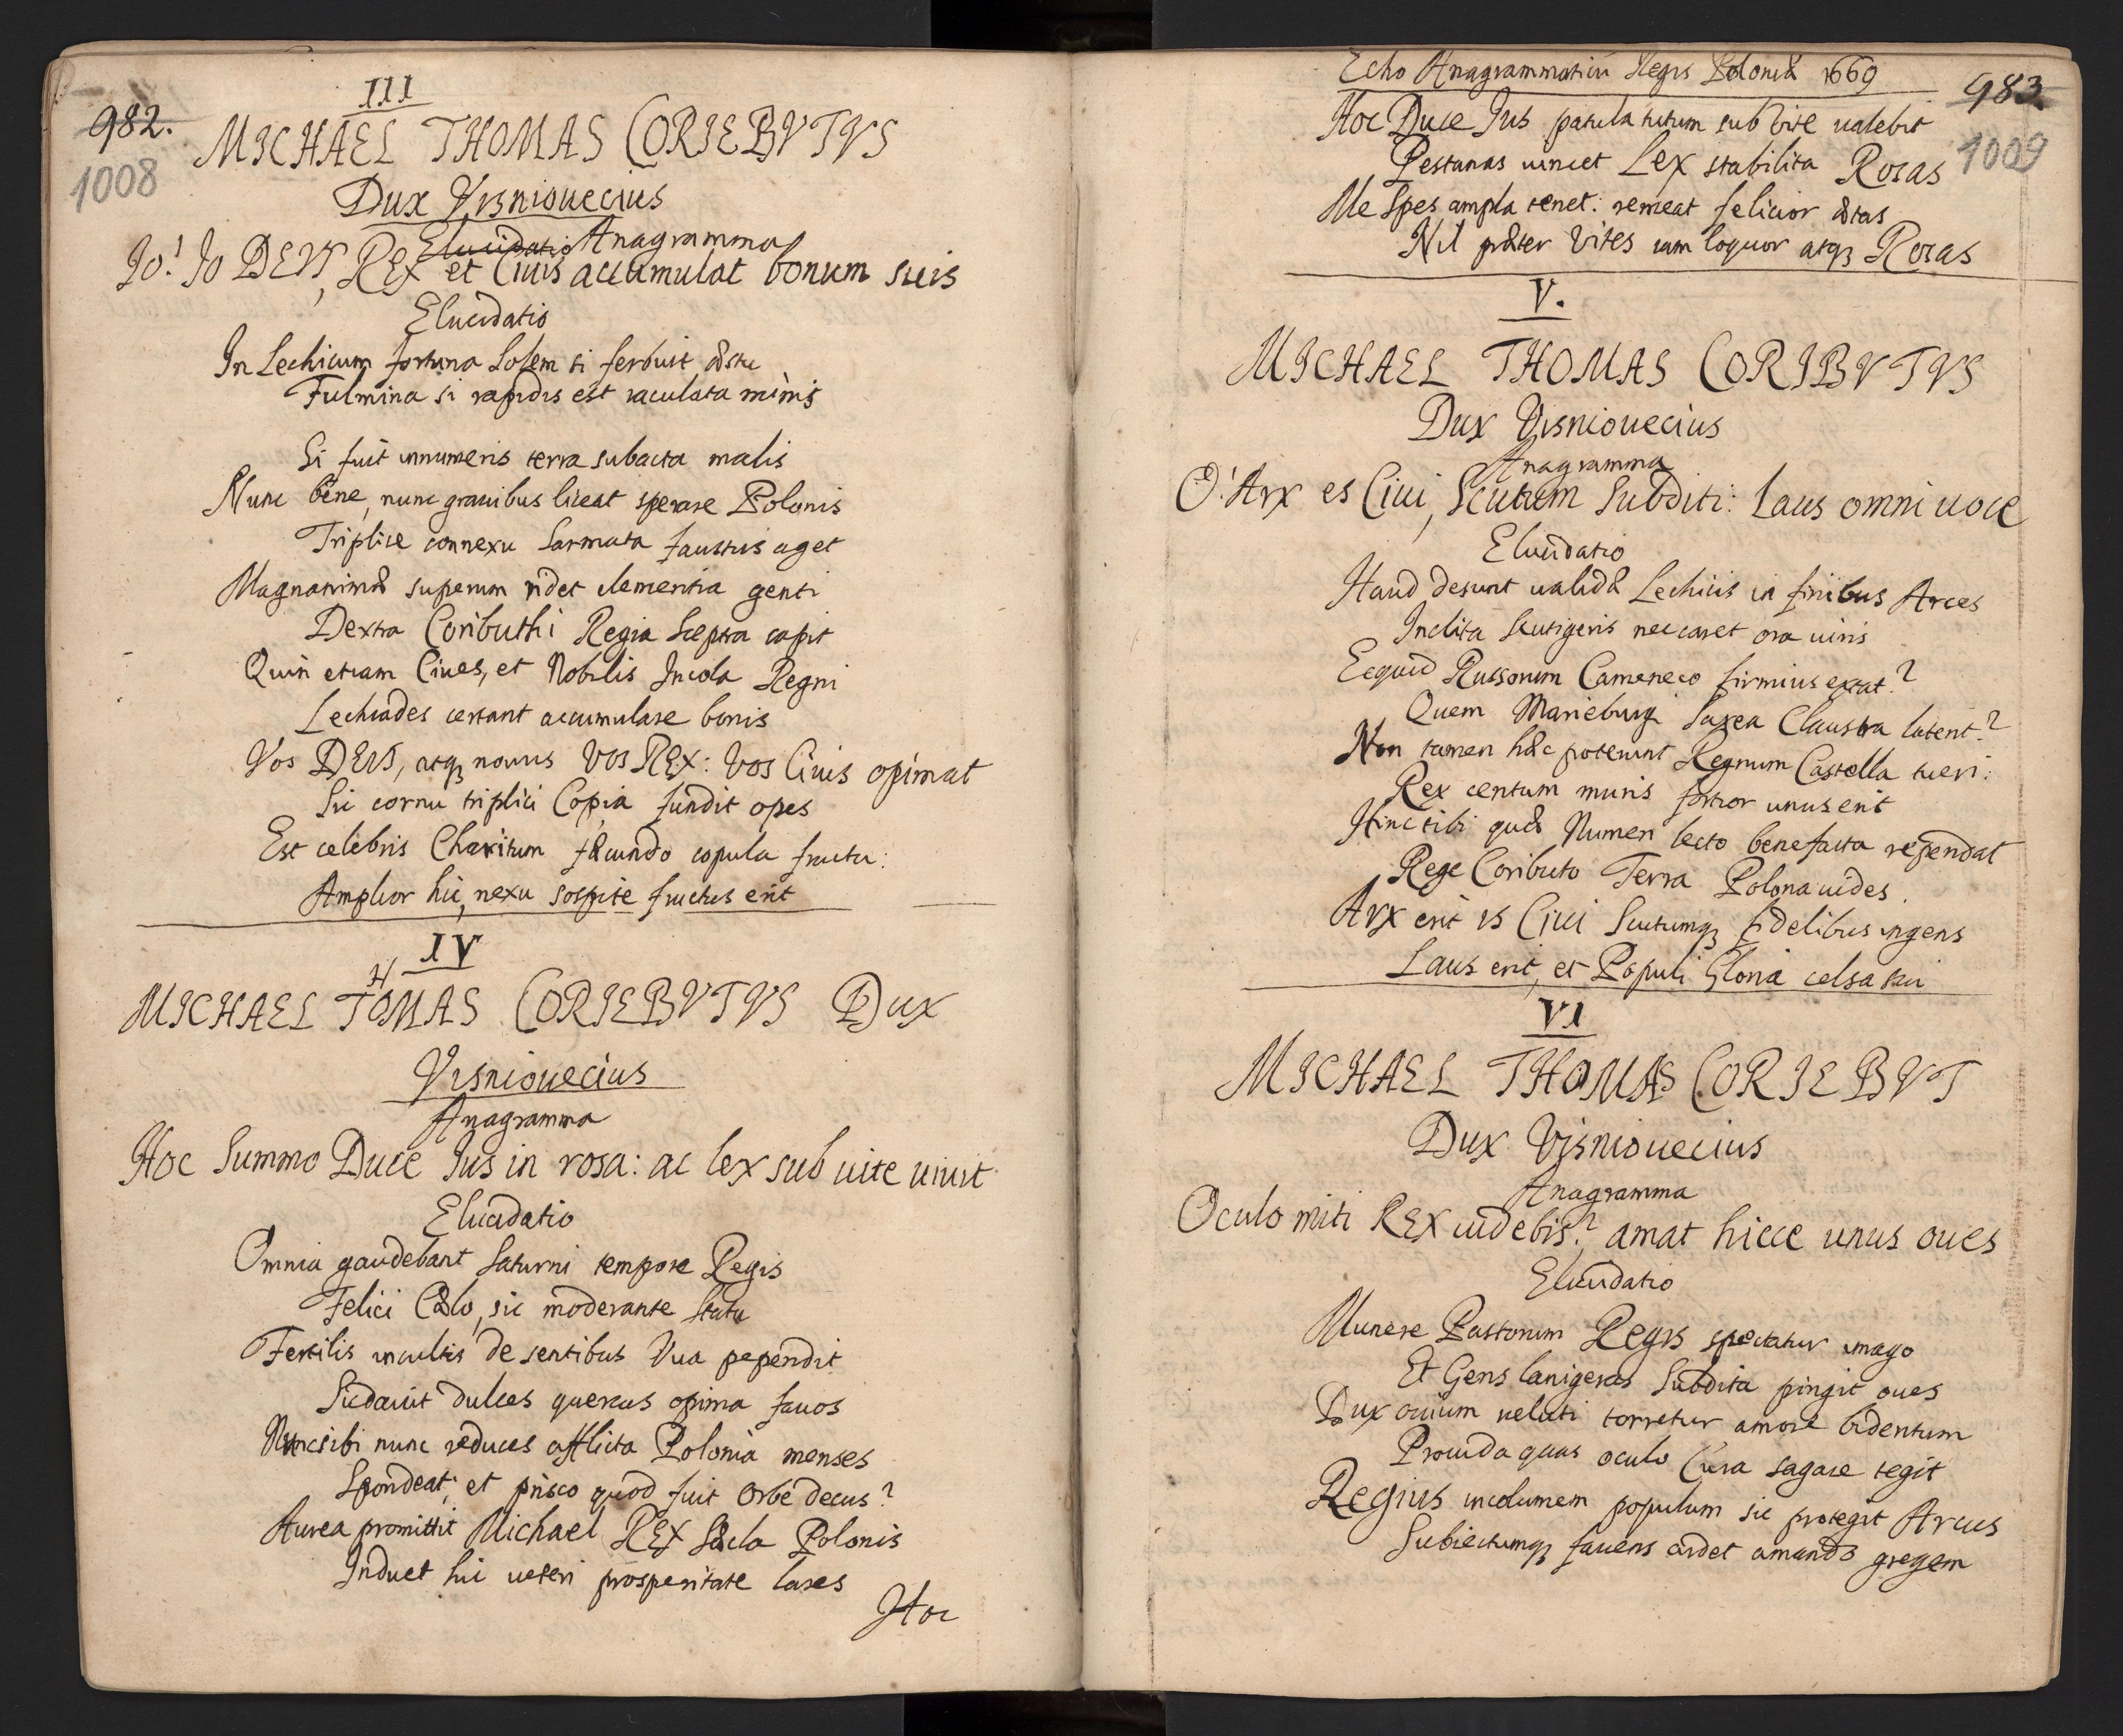 III
982.
1008
MICHAEL THOMAS CORIEBVTVS
Dux Visniouecius
Elucidatio Anagramma
Io! Io DEVS, REX et Ciuis accumulat bonum suis
Elucidatio
In Lechicum fortuna Solem si ferbuit æstu
Fulmina si rapidis est iaculata minis
Si fuit innumeris terra subacta malis
Nunc bene, nunc grauibus liceat sperare Polonis
Triplice connexu Sarmata faustus aget
Magnanimæ superum ridet clementia genti
Dextra Coributhi Regia Sceptra capit
Quin etiam Ciues, et Nobilis Incola Regni
Lechiades certant accumulare bonis
Vos DEVS, atqꝫ nouus Vos REX: Vos Ciuis opimat
Sic cornu triplici Copia fundit opes
Est celebris Charitum fæcundo copula fructu:
Amplior hic, nexu sospite fructus erit
IV
MICHAEL THOMAS CORIEBVTVS Dux
Visniouecius
Anagramma
Hoc Summo Duce Jus in rosa: ac lex sub uite uiuit
Elucidatio
Omnia gaudebant Saturni tempore Regis
Felici Cælo, sic moderante Statu
Fertilis incultis de sentibus Vua pependit
Sudauit dulces quercus opima fauos
sibi nunc reduces afflicta Polonia menses
Spondeat; et prisco quod fuit Orbe decus?
Aurea promittit Michael REX Sæcla Polonis
Induet hic ueteri prosperitate lares
Hoc
Echo Anagrammaticū Regis Poloniæ 1669
983.
1009
Hoc Duce Jus patula tutum sub Vite ualebit
Pestanas uincet Lex stabilita Rosas
Me Spes ampla tenet: remeat felicior ætas
Nil præter Vites iam loquor atqꝫ Rosas
V.
MICHAEL THOMAS CORIBVTVS
Dux Visniouecius
Anagramma
O! Arx es Ciui, Scutum Subditi: Laus omni uoce
Elucidatio
Haud desunt ualidæ Lechicis in finibus Arces
Inclita Scutigeris nec caret ora uiris
Ecquid Russorum Cameneco firmius extat?
Quem Marieburgi Saxea Claustra latent?
Non tamen hæc poterunt Regnum Castella tueri:
Rex centum muris fortior unus erit
Hinc tibi quæ Numen lecto benefacta rependat
Rege Coributo Terra Polona uides.
Arx erit is Ciui Scutumqꝫ fidelibus ingens
Laus erit, et Populi Gloria celsa sui
VI
MICHAEL THOMAS CORIEBVT
Dux Visniouecius
Anagramma
Oculo miti REX uidebis? amat hicce unus oues
Elucidatio
Munere Pastorum Regis spectatur imago
Et Gens lanigeras Subdita pingit oues
Dux ouium ueluti torretur amore bidentum
Prouida quas oculo Cura sagace tegit
Regius incolumem populum sic protegit Arcus
Subiectumqꝫ fauens ardet amando gregem